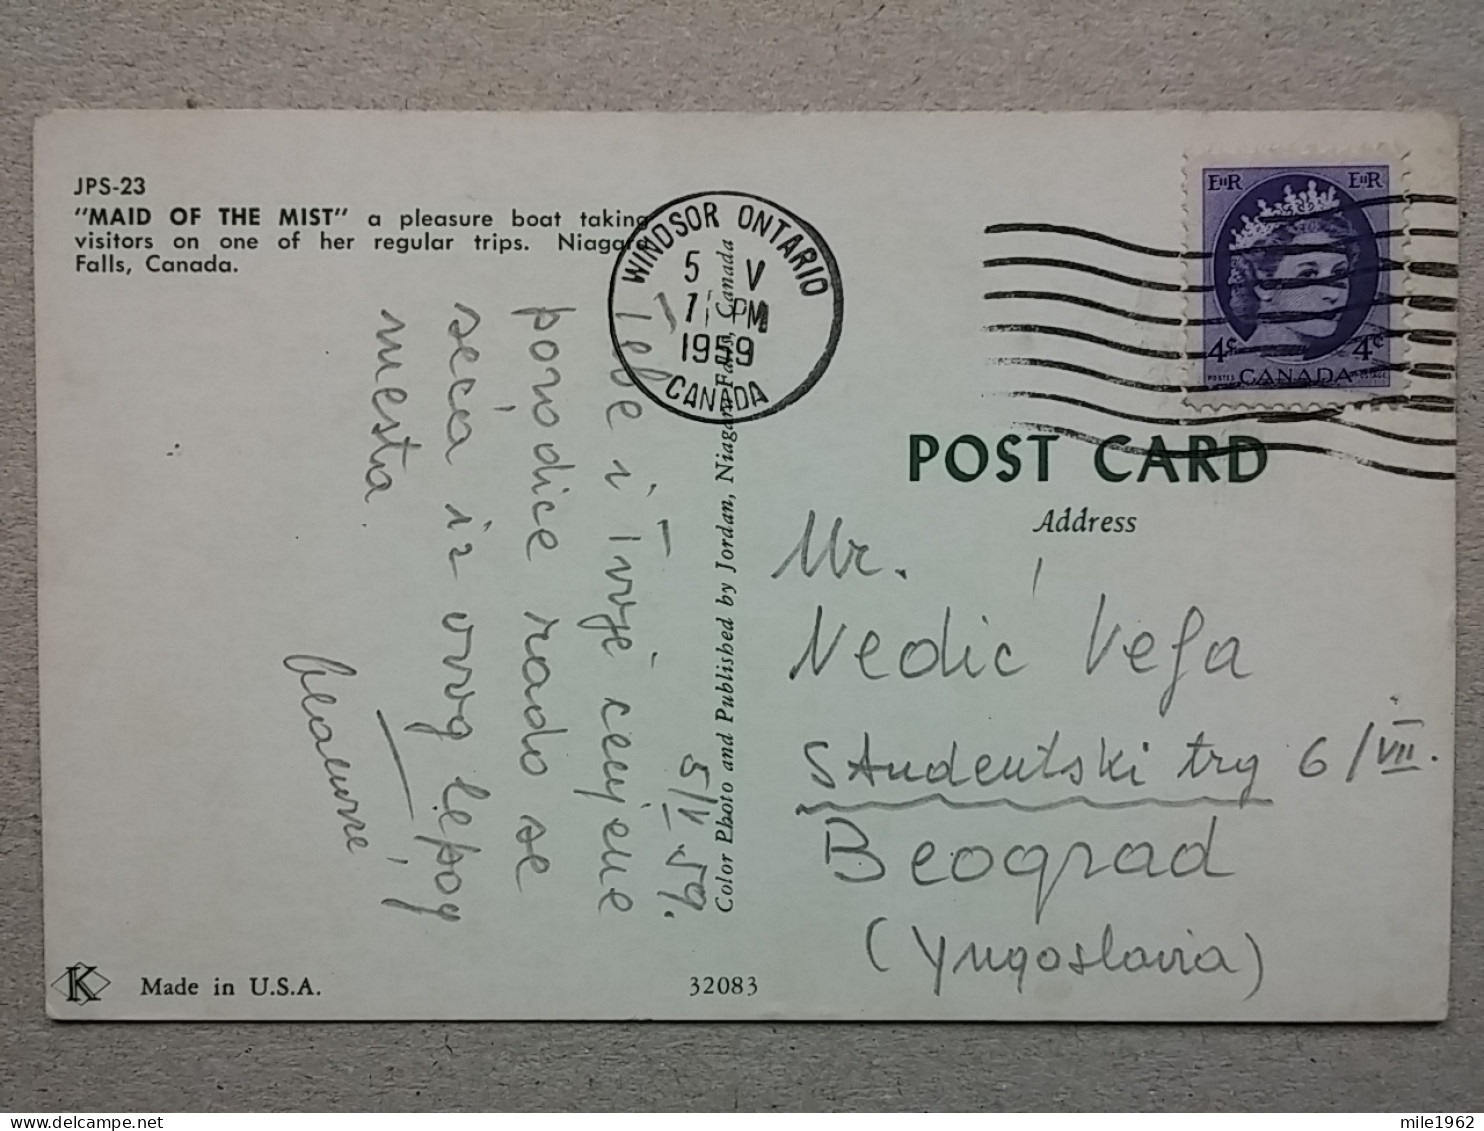 JPS-23
"MAID OF THE MIST" a pleasure boat taking
visitors on one of her regular trips. Niagara
Falls, Canada.
WINDSOR ONTARIO
5 V
PM
1959
CANADA
EIIR EIIR
4¢ 4¢
POSTES CANADA POSTAGE
POST CARD
Address
Mr.
Nedić Vefa
Studentski trg 6/VII.
Beograd
(Yugoslavia)
5/V 59.
Tebe i Tvoje cenjene
porodice rado se
seća iz ovog lepog
mesta
Color Photo and Published by Jordan, Niagara Falls, Canada
K
Made in U.S.A.
32083
mile1962